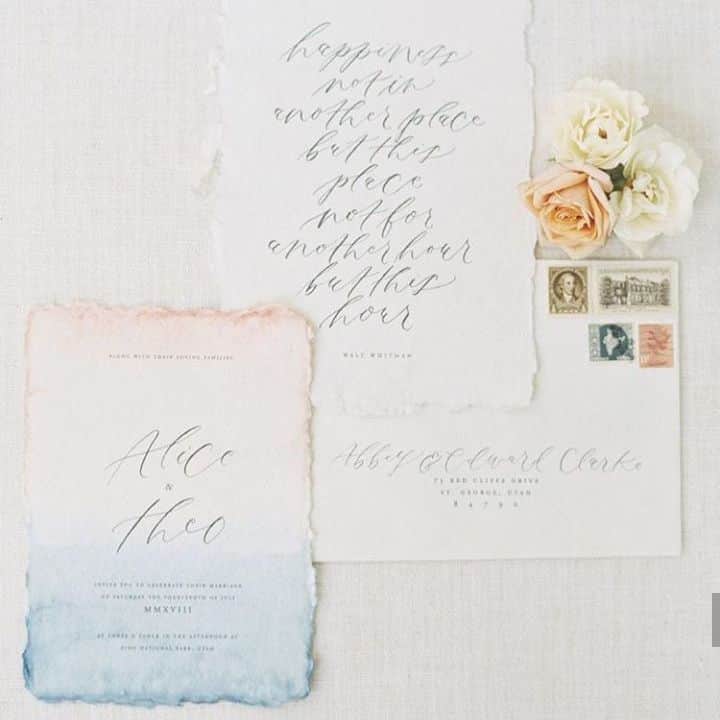 happiness
not in
another place
but this
place
not for
another hour
but this
hour
WALT WHITMAN
ALONG WITH THEIR LOVING FAMILIES
Alice
&
Theo
INVITE YOU TO CELEBRATE THEIR MARRIAGE
ON SATURDAY THE FOURTEENTH OF JULY
MMXVIII
AT THREE O'CLOCK IN THE AFTERNOON AT
ZION NATIONAL PARK, UTAH
Abbey & Edward Clarke
71 RED CLIFFS DRIVE
ST. GEORGE, UTAH
84790